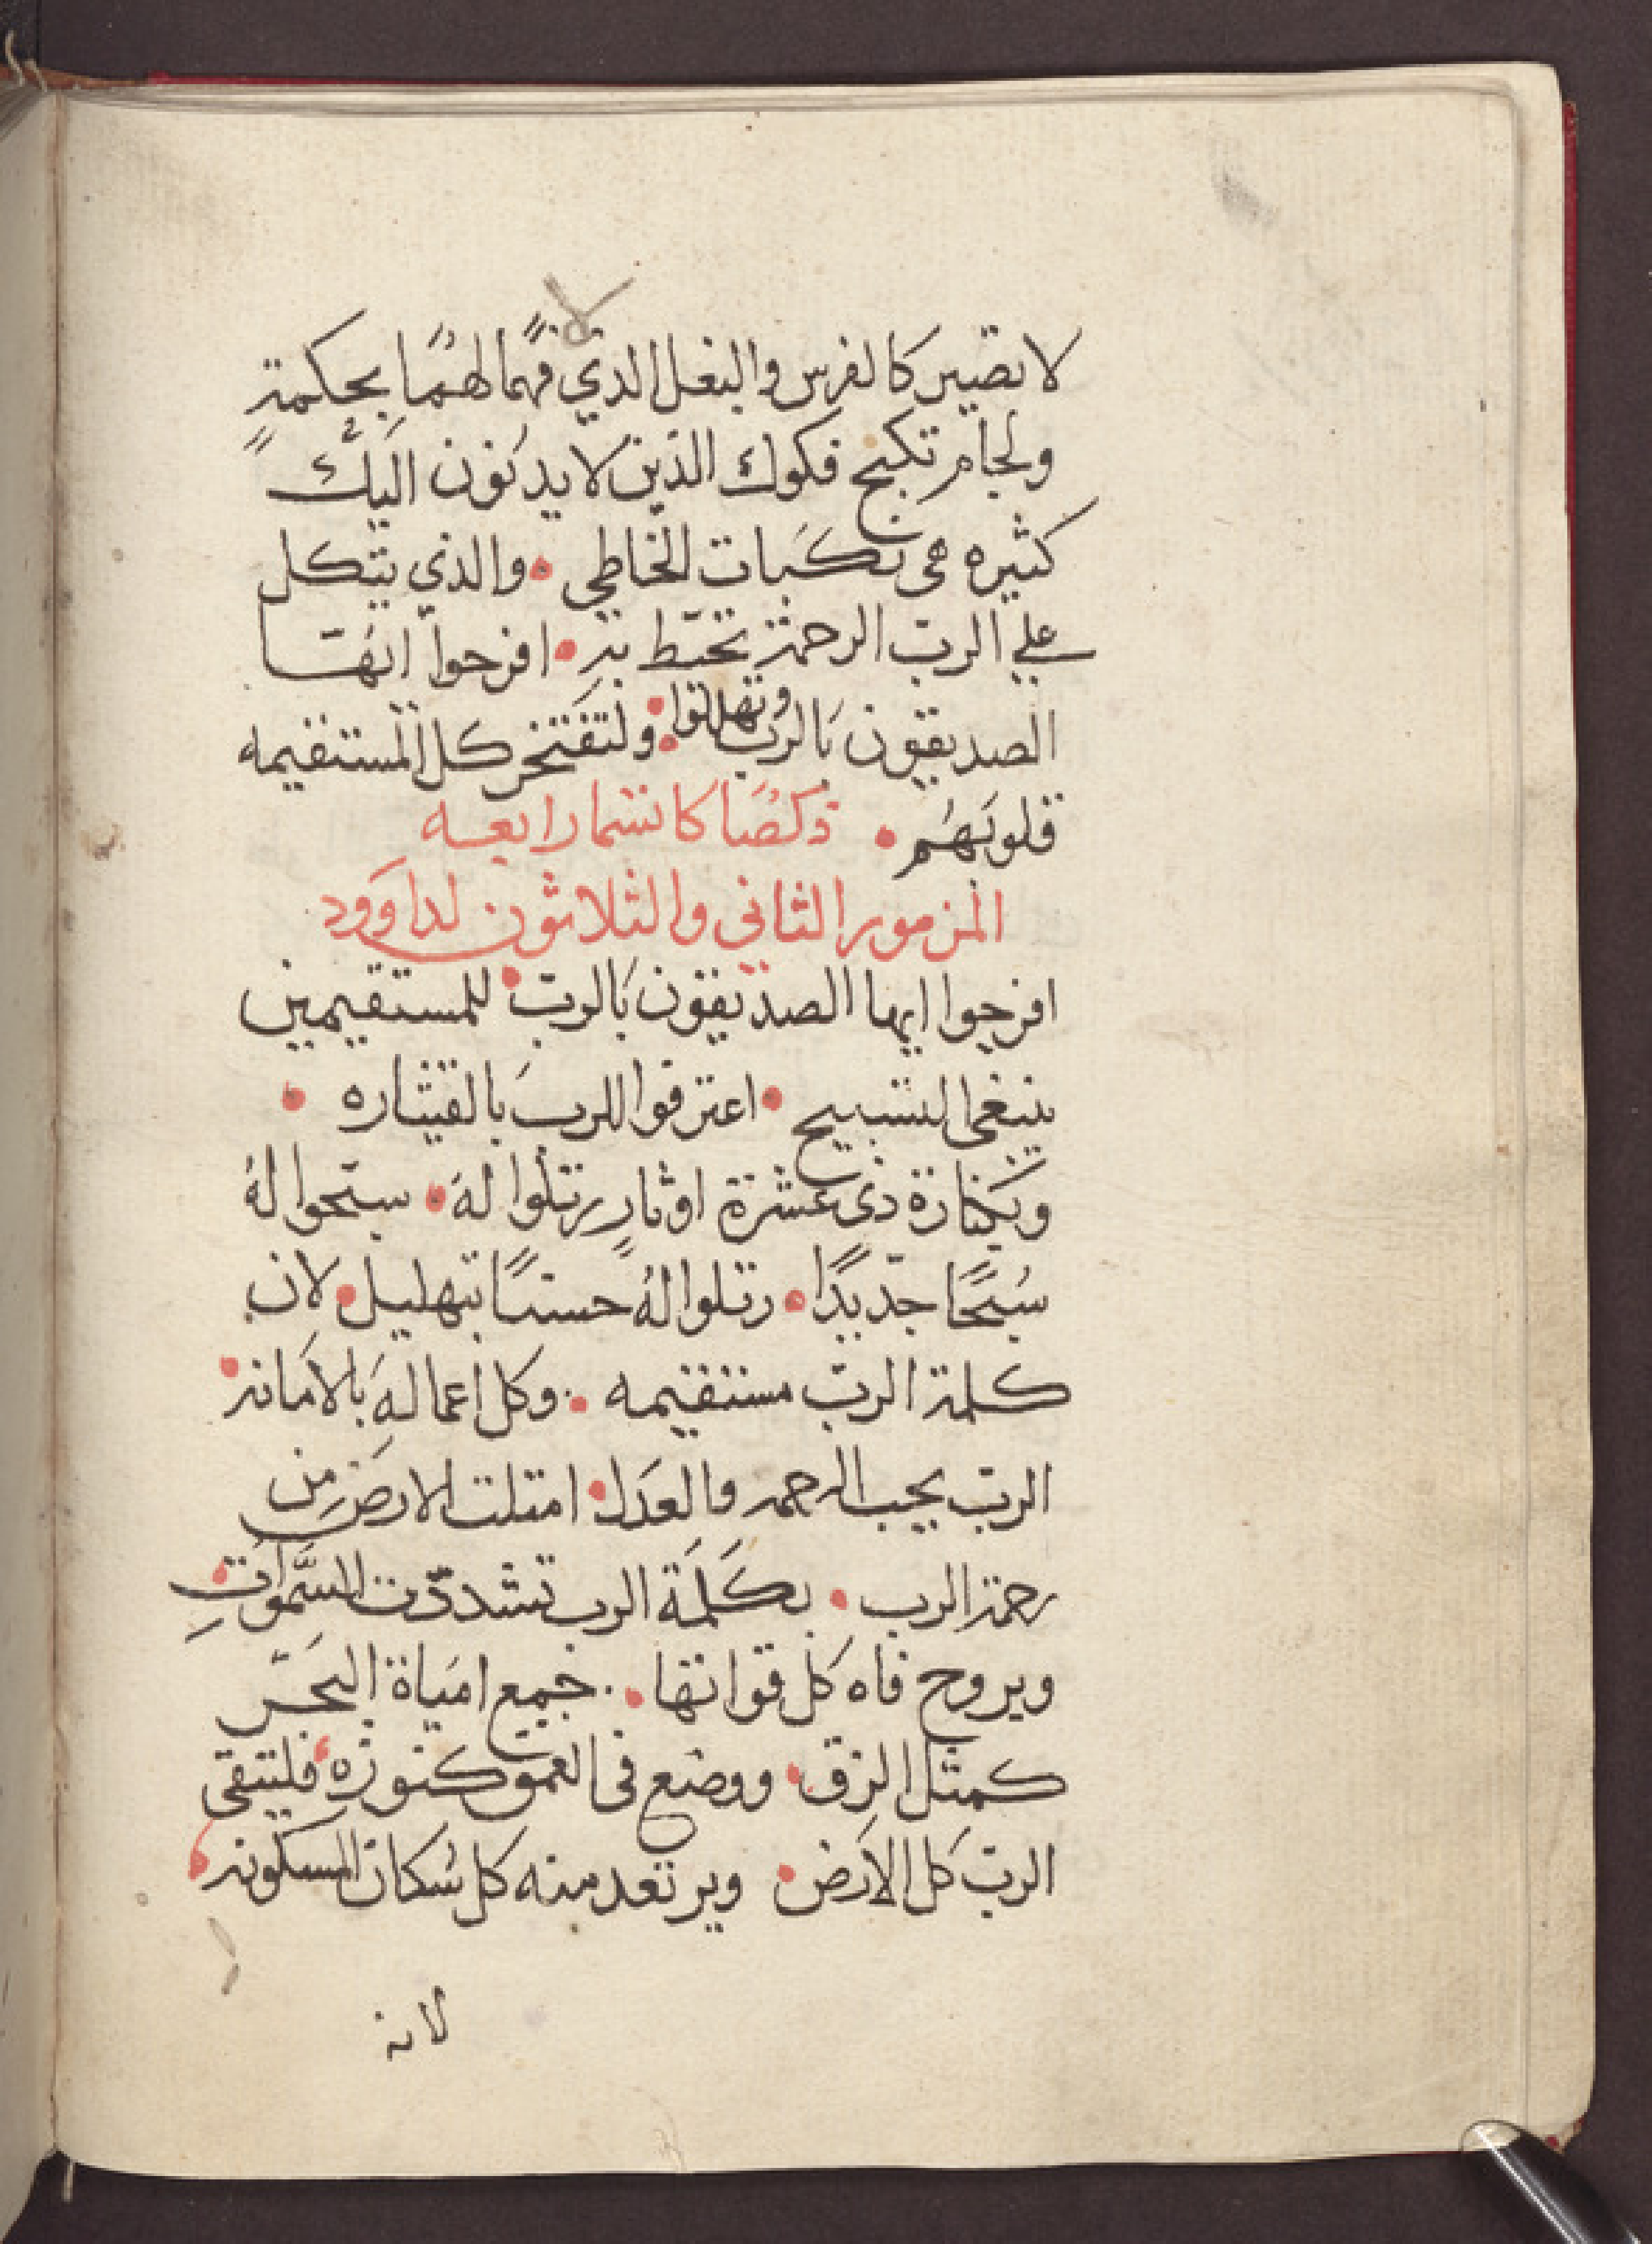 لا
لا تصير كالفرس والبغل الذي فهما لهما بحكمة
ولجام تكبح فكوك الذين لا يدنون اليك
كثيره هي نكبات الخاطي • والذي يتكل
علي الرب الرحمة تحيط به • افرحوا ايها
الصديقون بالرب وتهللوا • ولتفتخر كل المستقيمه
قلوبهم • ذكصا كانسما رابعه
المزمور الثاني والثلاثون لداوود
افرحوا ايها الصديقون بالرب • للمستقيمين
ينبغي التسبيح • اعترفوا للرب بالقيثاره •
وبكنارة ذي عشرة اوثار رتلوا له • سبحوا له
سُبحًا جديدًا • رتلوا له حسنًا بتهليل • لان
كلمة الرب مستقيمه • وكل اعماله بالامانة •
الرب يحب الرحمه والعدل • امتلت الارض من
رحمة الرب • بكلمة الرب تشددت السموات •
وبروح فاه كل قواتها • جمع امياة البحر
كمثل الزق • ووضع في العمق كنوزه • فليتقي
الرب كل الارض • ويرتعد منه كل سكان المسكونة •
لانه